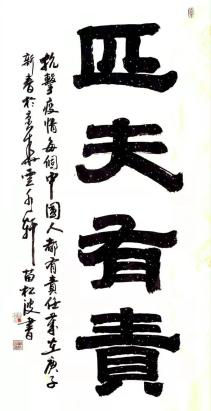 匹夫有責
抗擊疫情每個中国人都有責任歲在庚子
新春於京華雲水軒苗松波書